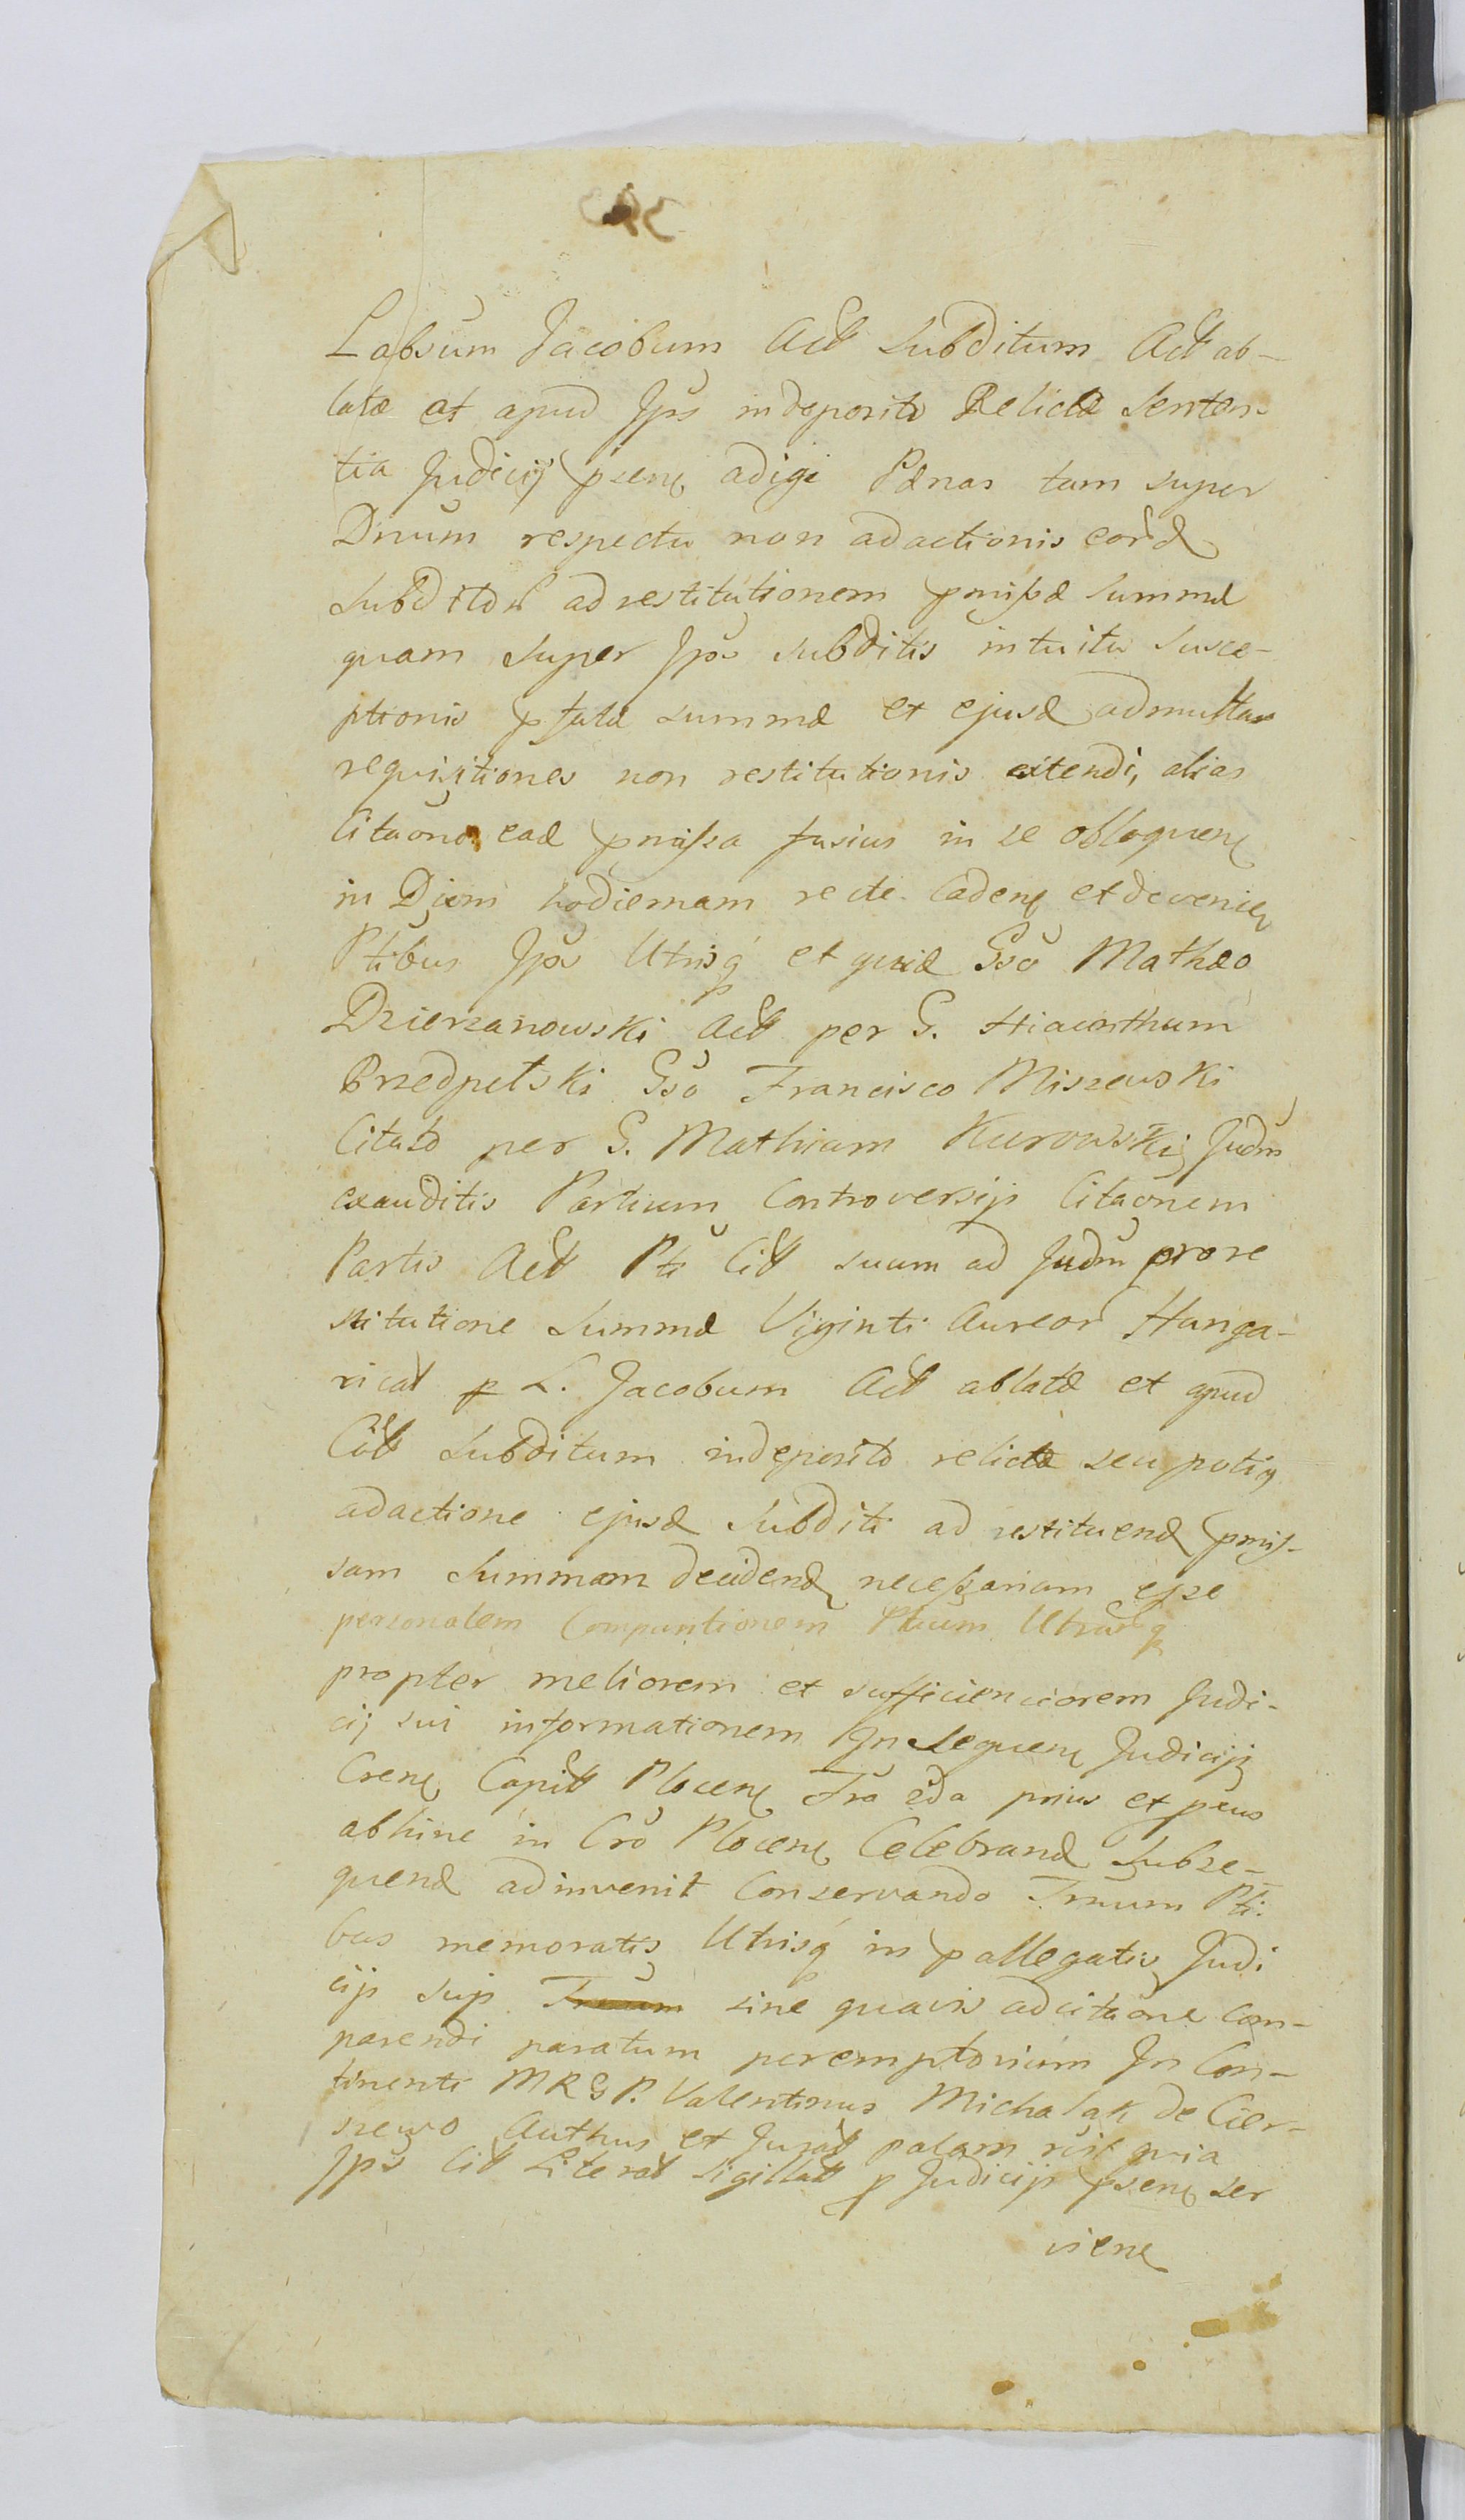 Labsum Jacobum Actt Subditum Actt ab-
latæ et apud Jpõs in deposito Relictæ Senten-
tia Judicij psenę adigi Pænas tam super
Dnum respectu non adactionis eord
Subditor ad restitutionem pmissæ summæ
quam super Jpõs subditis intuitu susce-
ptionis pfatæ summæ et ejusd ad multas
requisitiones non restitutionis extendi, alias
Citaõne ead pmissa fusius in se obloquenę
in Diem hodiernam recte Cadenę et devenien
Ptibus Jpõs Utrisq et quid Gsõ Mathæo
Dzierzanowski Actt per G. Hiacinthum
Przedpełski Gsõ Francisco Miszewski
Citato per G. Mathiam Kurowski Judm
exauditis Partium Controversijs Citaõnem
Partis Actt Pti Citt suum ad Judm pro re
stitutione Summæ Viginti Aureor Hunga-
rical p L. Jacobum Actt ablatæ et apud
Citt Subditum in deposito relictæ seu potiq
adactione ejusd Subditi ad restituend pmis-
sam Summam decidend necessariam esse
personalem Comparitionem Ptium Utrarq
propter meliorem et sufficienciorem Judi-
cij sui informationem In sequenę Judicijs
Crenę Capitt Plocenę Fra 2da prius et penes
abhinc in Cro Plocenę Celebrand Subse-
quend adinvenit Conservando Trnum Pti-
bus memoratis Utrisq in pallegatis Judi
cijs suis Trnum sine quavis adcitaõne Com-
parendi paratum peremptorium In Con-
tinenti MRGP. Valentinus Michalak de Cier-
szewo Authus et Juratt palam rēst quia
Jpõs Citt Literat Sigillatt p Judicijs psenę ser
vienę